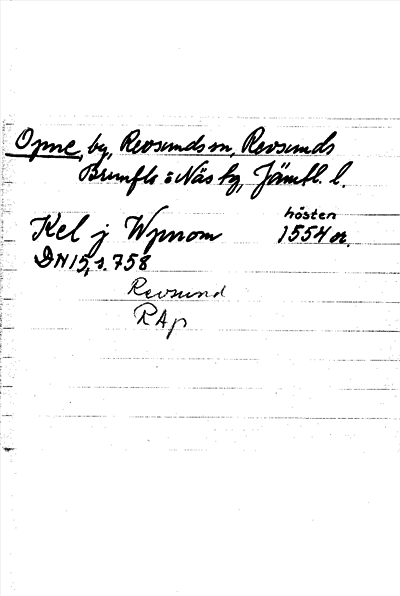 Opne, by, Revsunds sn, Revsunds
Brunflo o Näs tg, Jämtl. l.
Kel j Wpnom hösten 1554 or.
DN 15, s. 758
Revsund
RAp